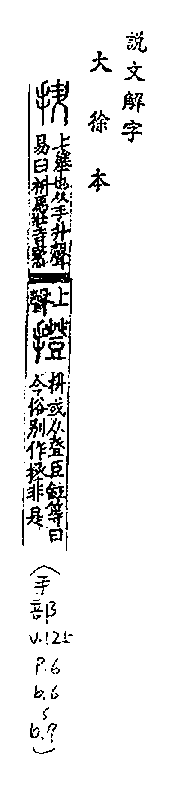 說文解字
大徐本
抍
上舉也从手升聲
易曰抍馬壯吉蒸
上
聲
撜
抍或从登臣鉉等曰
今俗別作拯非是
(手部
v.125
p.6
b.6
s
b.9)